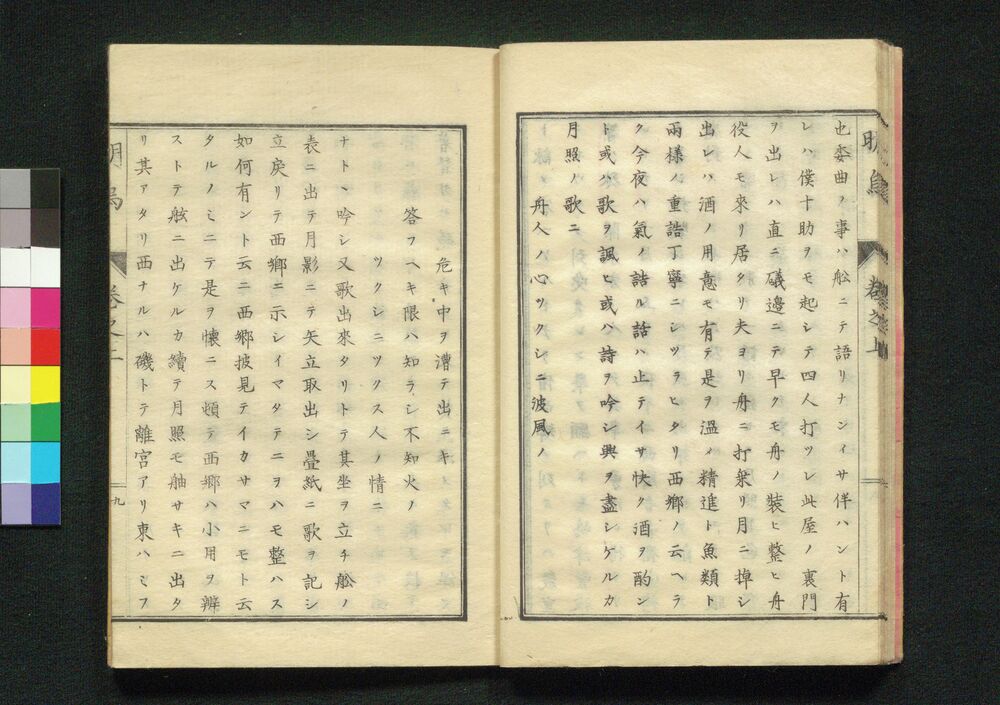 也委曲ノ事ハ舩ニテ語リナンイサ伴ハント有
レハ僕十助ヲモ起シテ四人打ツレ此屋ノ裏門
ヲ出レハ直ニ礒邊ニテ早クモ舟ノ装ヒ整ヒ舟
役人モ來リ居タリ夫ヨリ舟ニ打乘リ月ニ掉シ
出レハ酒ノ用意モ有テ是ヲ温メ精進ト魚類ト
兩様ノ重詰丁寧ニシツラヒタリ西郷ノ云ヘラ
ク今夜ハ氣ノ詰ル話ハ止テイサ快ク酒ヲ酌ン
ト或ハ歌ヲ諷ヒ或ハ詩ヲ吟シ興ヲ盡シケルカ
月照ノ歌ニ
舟人ノ心ツクシニ波風ノ
危キ中ヲ漕テ出ニキ
答フヘキ限ハ知ラシ不知火ノ
ツクシニツクス人ノ情ニ
ナトヽ吟シ又歌出來タリトテ其坐ヲ立チ舩ノ
表ニ出テ月影ニテ矢立取出シ疊紙ニ歌ヲ記シ
立戻リテ西郷ニ示シイマタテニヲハモ整ハス
如何有ント云ニ西郷披見テイカサマニモト云
タルノミニテ是ヲ懐ニス頓テ西郷ハ小用ヲ辨
ストテ舷ニ出ケルカ續テ月照モ舳サキニ出タ
リ其アタリ西ナルハ磯トテ離宮アリ東ハミフ
明烏
卷之上
九